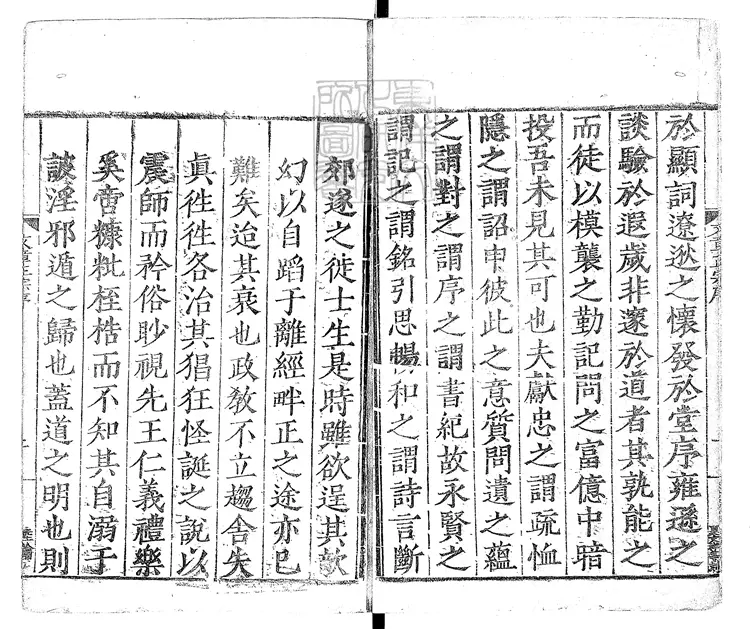 於顯詞遼逖之懷發於堂序雍遜之
談驗於遐歲非邃於道者其孰能之
而徒以模襲之勤記問之富億中暗
投吾未見其可也夫獻忠之謂疏恤
隱之謂詔申彼此之意質問遺之蘊
之謂對之謂序之謂書紀故永賢之
謂記之謂銘引思暢和之謂詩言斷
郊遂之徒士生是時雖欲逞其欹
幻以自蹈于離經畔正之途亦已
難矣迨其衰也政敎不立趨舍失
眞徃徃各治其猖狂怪誕之說以
震師而矜俗眇視先王仁義禮樂
奚啻糠粃桎梏而不知其自溺于
詖淫邪遁之歸也蓋道之明也則
文章正宗序